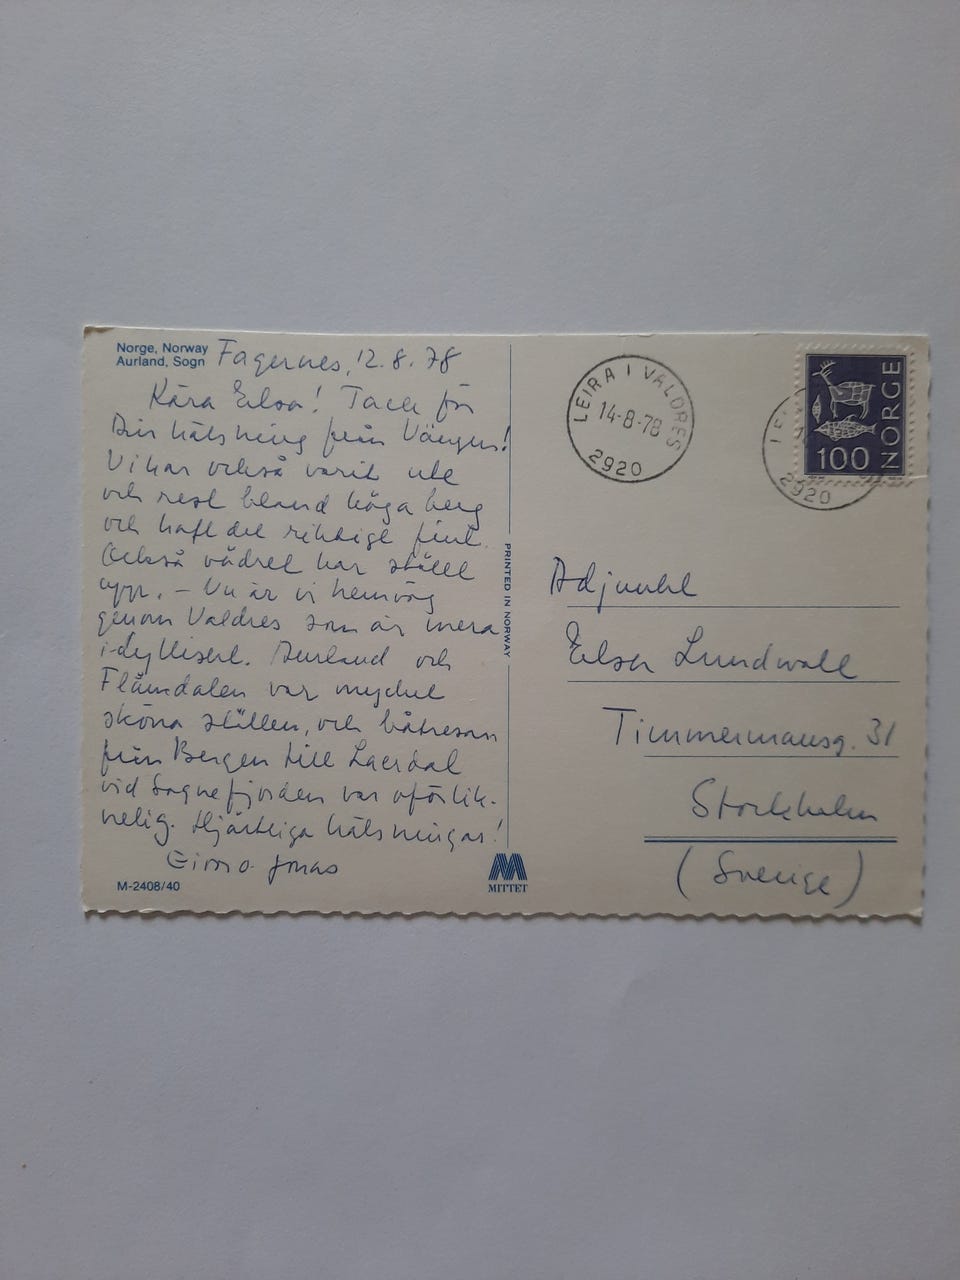 Norge, Norway
Aurland, Sogn
Fagernes, 12.8.78
Kära Elsa! Tack för
Din hälsning från Vängus!
Vi har också varit ute
och rest bland höga berg
och haft det riktigt fint.
Också vädret har ställt
upp. – Nu är vi på hemväg
genom Valdres som är mera
idylliskt. Aurland och
Flåmdalen var mycket
sköna ställen, och båtresan
från Bergen till Laerdal
vid Sognefjorden var oförlik-
nelig. Hjärtliga hälsningar!
Jonas
M-2408/40
PRINTED IN NORWAY
MITTET
LEIRA I VALDRES
14-8-78
2920
LEI
2920
NORGE
100
Adjunkt
Elsa Lundwall
Timmermansg. 31
Stockholm
(Sverige)